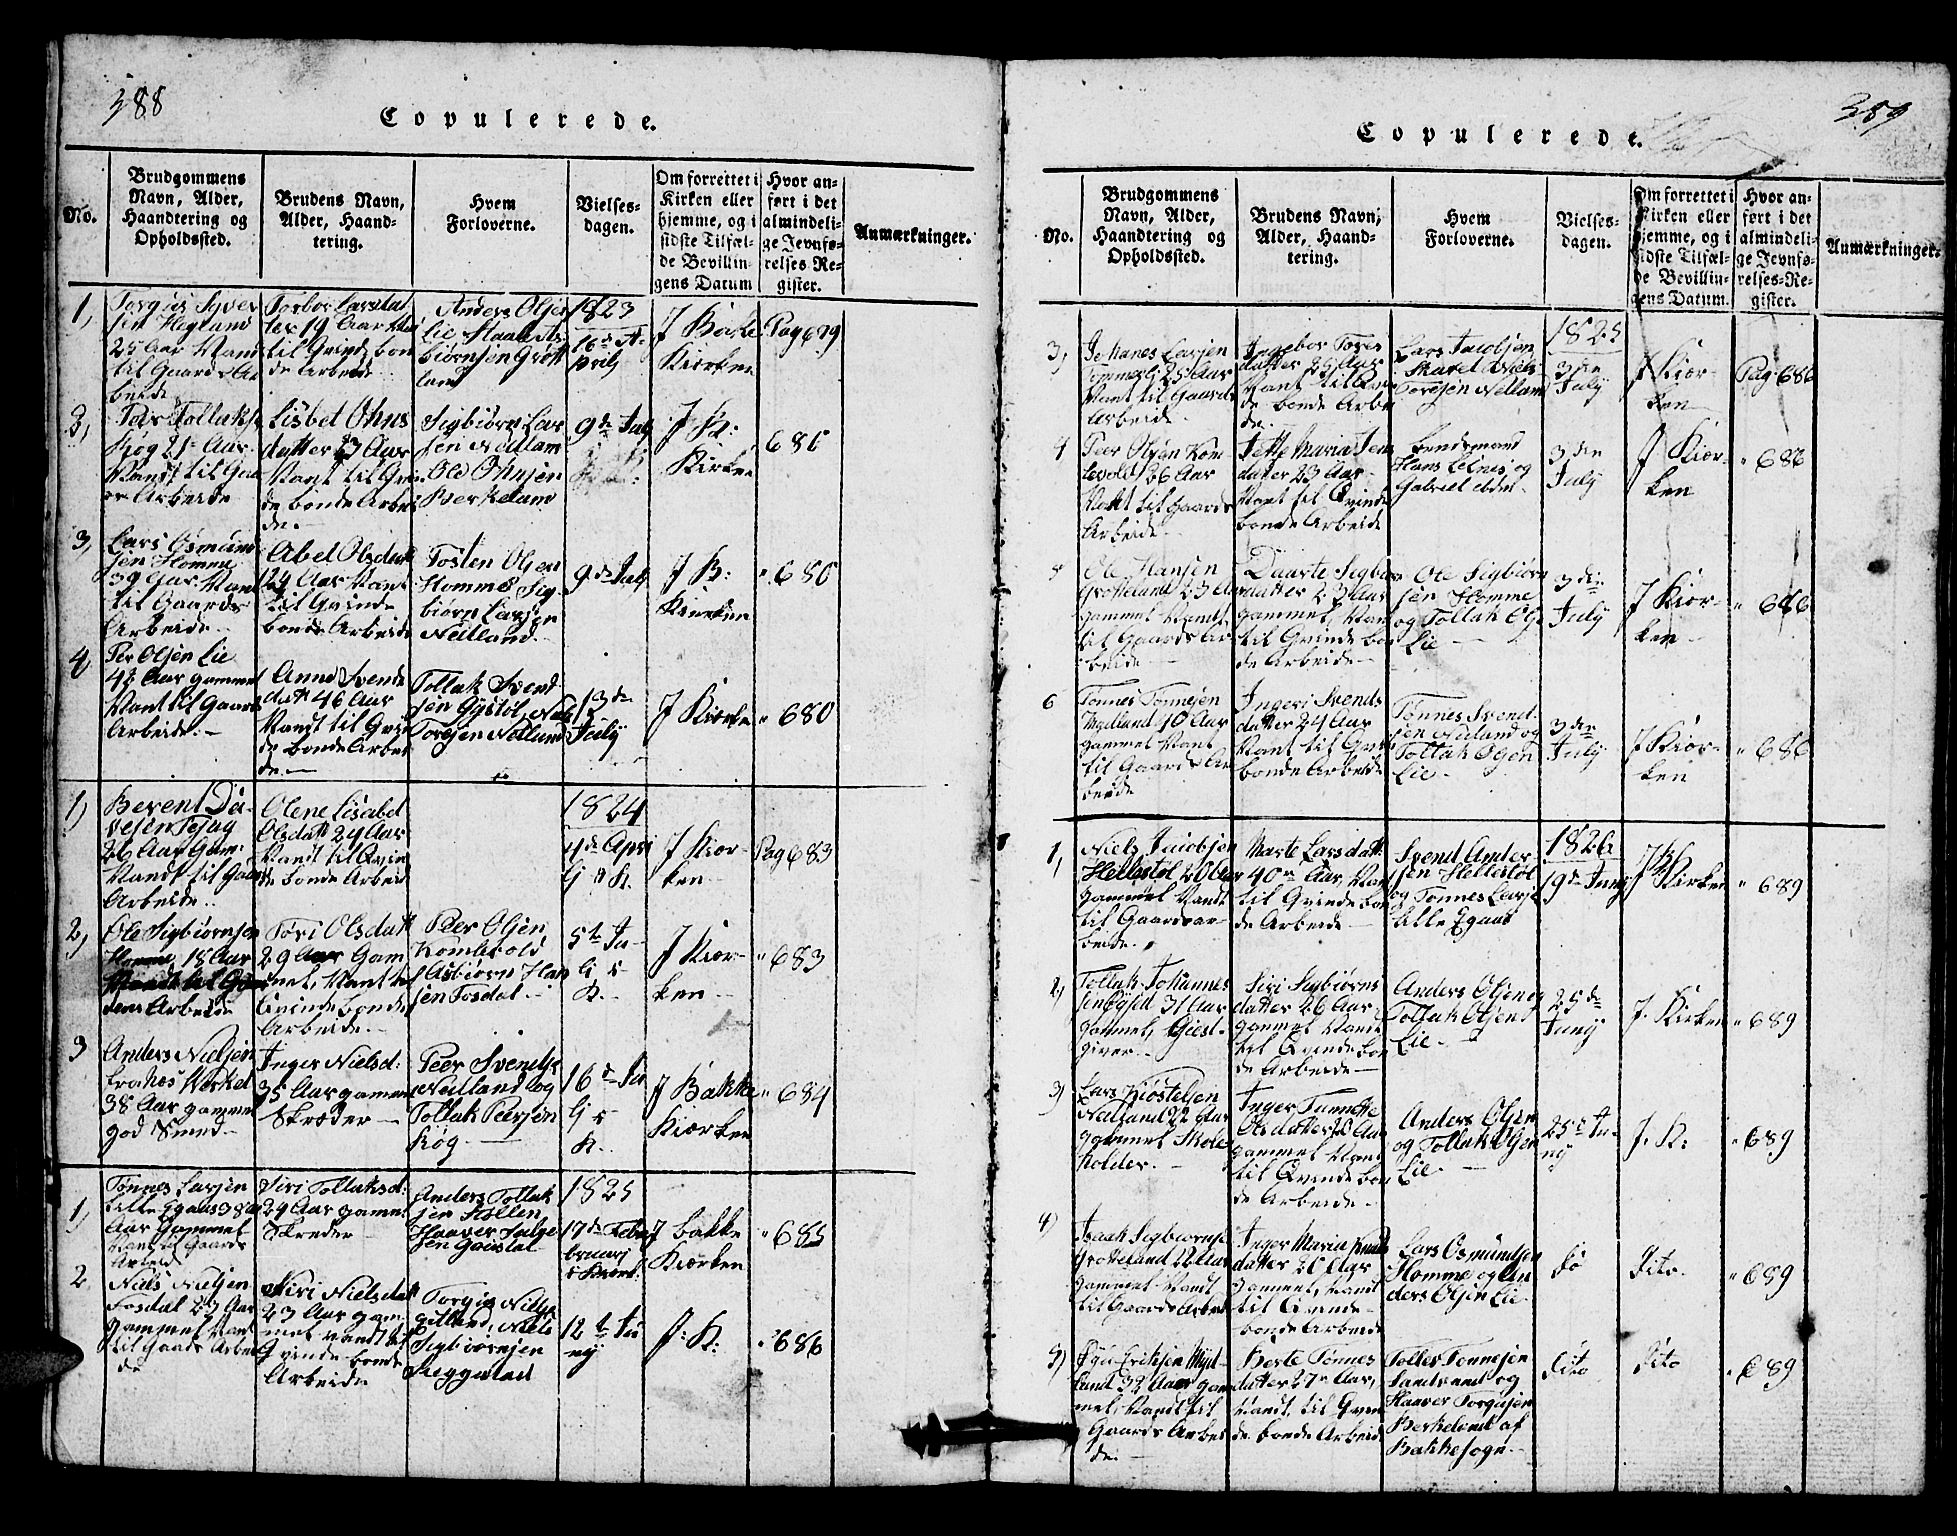 388
Copulerede.
No.
Brudgommens
Navn, Alder,
Haandtering og
Opholdssted.
Brudens Navn,
Alder, Haand-
tering.
Hvem
Forloverne.
Vielses-
dagen.
Om forrettet i
Kirken eller
hjemme, og i
sidste Tilfæl-
de Bevillin-
gens Datum
Hvor an-
ført i det
almindeli-
ge Jevnfø-
relses-Re-
gister.
Anmærkninger.
1,
25 Aar Vant
til Gaards Ar
beide
Torbor Larsdat
ter 19 Aar Van
til Qvinde bon
de Arbeide
Anders Olsen
Lie, Staale As
biørnsen Grøtt
land
1823
16de A-
pril
J Bakke
Kiørken
Pag 679
2,
Peer Tollaks
Røg 21 Aar
Vandt til Gaa
Arbeide
Lisbet Ohns
datter 23 Aar
Vant til Qvin
de bonde Arbei
de.
Sigbiørn Lar
sen Nedland
Ole Ohnsen
Berkeland
9de July
J. K:
Kirken
680
3,
Lars Osmund
sen Homme
39 Aar Vant
til Gaards
Arbeide
Abel Olsdatt
24 Aar Vant
til Qvinde
bonde Arbeide
Tosten Olsen
Homme Sig
biørn Larsen
Nedland
9de July
J B:
Kiørken
" 680
4,
Per Olsen Lie
48 Aar gammel
Vant til Gaards
Arbeide.
Anne Svends
datt 46 Aar
Vandt til Qvin
de bonde Arbei
de.
Tollak Svend
sen Gystøl, Niels
Toresen Nedland
13de
July
J Kiørken
" 680
1)
Berent Da-
26 Aar Gam:
Vandt til Gaards
Arbeide..
Olene Lisabet
Olsdatt 24 Aar
Vandt til Qvin
de bonde Arbeid
1824
4de Apri
J Kiør-
ken
Pag 683
2,
Ole Sigbiørnsen
Homme, 18 Aar
Arbeide
Tori Olsdatt
29 Aar Gam
mel, Vant til
Qvinde bonde
Arbeide.
Peer Olsen
Komlevold
Asbiørn Han
sen Fosdal
J Kiør-
ken
" 683
3
Anders Nielsen
38 Aar gamme
god Smed
Inger Nielsd:
35 Aar gamm
Skræder
Peer Svends
Nedland og
Tollak Peersen
Røg.
J Bakke
Kiørken
" 684
1,
Tønnes Larsen
Lille Egaas 38
Aar Gammel
Vant til Gaards
Arbeide
Siri Tollaksd:
24 Aar gamm
Skreder
Anders Tollak
sen Stølen,
1825
17de Febr
bruarj
J bakke
Kiørken
" 685
2
Niels Nielsen
Fosdal 27 Aar
gammel Vant
til Gaards Arbei
de
Siri Nielsdatt
23 Aar gam
mel vandt til
Qvinde bonde
Arbeide
Sigbiørnsen
Reggestad
12te Ju
nij
J. K:
" 686
389
Copulerede.
No.
Brudgommens
Navn, Alder,
Haandtering og
Opholdssted.
Brudens Navn,
Alder, Haand-
tering.
Hvem
Forloverne.
Vielses-
dagen.
Om forrettet i
Kirken eller
hjemme, og i
sidste Tilfæl-
de Bevillin-
gens Datum.
Hvor an-
ført i det
almindeli-
ge Jevnfø-
relses-Re-
gister.
Anmærkninger.
3,
Johanes Larsen
25 Aar
Vant til Gaards
Arbeide
Ingebor Tores
datter 25 Aar
Vant til Qvin
de bonde Arbei
de.
Lars Jacobsen
Niels
Toresen Nedland
1825
3die
July
J Kiør-
ken
Pag 686
4
Peer Olsen Kom
levold 26 Aar
Vant til Gaards
Arbeide
Jette Maria Jens
datter 23 Aar
Vant til Qvinde
bonde Arbeide
Bondemand
Hans Eines og
Gabriel ibdet
3die
July
J Kiør-
ken
" 686
5
Ole Hansen
Grøtteland 23 Aar
gammel Vant
til Gaards Ar
beide
Daarte Sigbiørns
datter 23 Aar
gammel, Vant
til Qvinde bon
de Arbeide
Ole Sigbiørn
sen Homme
og Tollak Ols
Lie
3die
July
J Kiør-
ken
" 686
6
Tønnes Tønnesen
Mydland 40 Aar
gammel Vant
til Gaards Ar
beide
Ingeri Svends
datter 24 Aar
Vant til Qvin
bonde Arbeide
Tønnes Svend-
sen Nedland og
Tollak Olsen
Lie
3die
July
J Kiør-
ken
" 686
1,
Niels Jacobsen
Hellestøl 20 Aar
gammel Vandt
til Gaardsar-
beide.
Marte Larsdatt
40 Aar, Vant
til Qvinde bon
de Arbeide
Svend Ander-
sen Hellestøl
og Tønnes Larse
Lille Egaas
1826
19de Juny
J Kirken
" 689
2,
Tollak Johannes
sen 31 Aar
gammel, Giest-
giver
Siri Sigbiørns
datter 26 Aar
gammel Vandt
til Qvinde bon
de Arbeide
Anders Olsen og
Tollak Olsen
Lie
25de
Juny
J. Kirken
" 689
3)
Lars Kiøstelsen
Nedland 22 Aar
gammel Skole
holder.
Inger Tannette
Olsdatter 18 Aar
gammel Vant
til Qvinde bon
de Arbeide.
Anders Olsen
og Tollak Olsen
Lie
25de Ju-
ny
J. K:
" 689
4)
Isaak Sigbiørnse
Grøtteland 22 Aar
gammel Vant
til Gaards Arbei
Inger Maria Knuds
datter 20 Aar
gammel, Vant
til Qvinde
bonde Arbeide
Lars Osmundsen
Homme og An
ders Olsen Lie
Do
Dito
" 689
5)
Eriksen Myd-
land 32 Aar gam
mel, Vandt til
Gaards Arbei
de.
Berte Tønnes
datter 27 Aar,
Vandt, til Qvin
de bonde Arbeide
Tolles Tønnesen
Sandvand og
Haaver Torgusen
Berkeland af
Bakke sogn
Dito
Dito
" 689